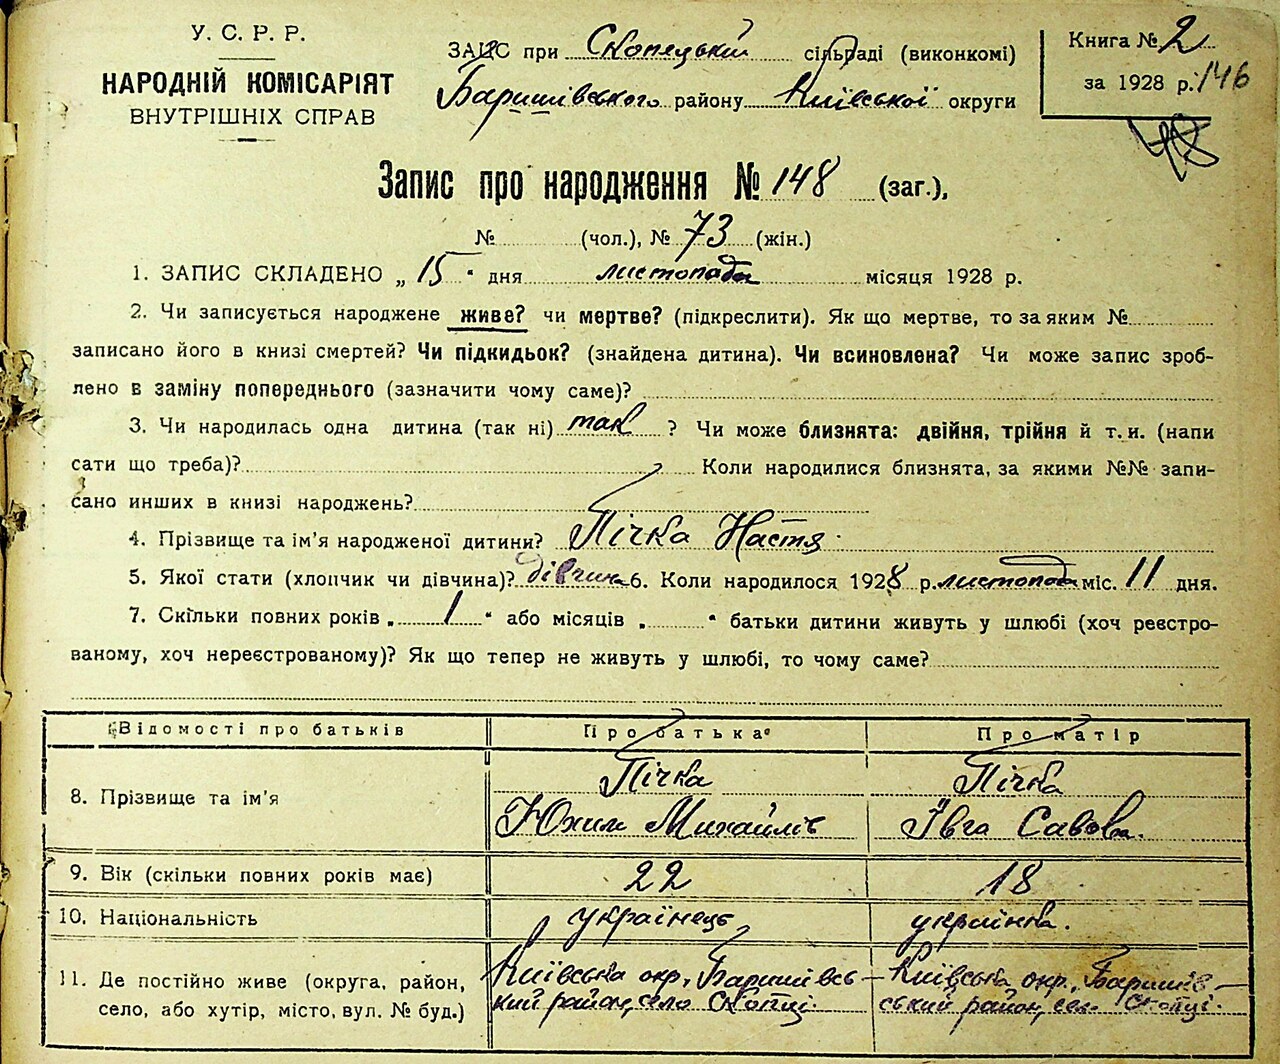 У. С. Р. Р.
НАРОДНІЙ КОМІСАРІЯТ
ВНУТРІШНІХ СПРАВ
ЗАЦС при Скопецькій сільраді (виконкомі)
Баришівського району Київської округи
Книга № 2
за 1928 р. 146
48
Запис про народження № 148 (заг.),
№ (чол.), № 73 (жін.)
1. ЗАПИС СКЛАДЕНО „ 15 “ дня листопада місяця 1928 р.
2. Чи записується народжене живе? чи мертве? (підкреслити). Як що мертве, то за яким №
записано його в книзі смертей? Чи підкидьок? (знайдена дитина). Чи всиновлена? Чи може запис зроб-
лено в заміну попереднього (зазначити чому саме)?
3. Чи народилась одна дитина (так ні) так ? Чи може близнята: двійня, трійня й т. и. (напи
сати що треба)? Коли народилися близнята, за якими №№ запи-
сано инших в книзі народжень?
4. Прізвище та ім’я народженої дитини? Пічка Настя
5. Якої стати (хлопчик чи дівчина)? дівчина 6. Коли народилося 1928 р. листопада міс. 11 дня.
7. Скільки повних років „ 1 “ або місяців „ “ батьки дитини живуть у шлюбі (хоч реєстро-
ваному, хоч нереєстрованому)? Як що тепер не живуть у шлюбі, то чому саме?
Відомості про батьків Про батька Про матір
8. Прізвище та ім’я Пічка Юхим Михайлів Пічка Ївга Савова.
9. Вік (скільки повних років має) 22 18
10. Національність українець українка.
11. Де постійно живе (округа, район, Київська окр., Баришівсь- Київська окр., Баришів-
село, або хутір, місто, вул. № буд.) кий район, село Скопці. ський район, село Скопці.